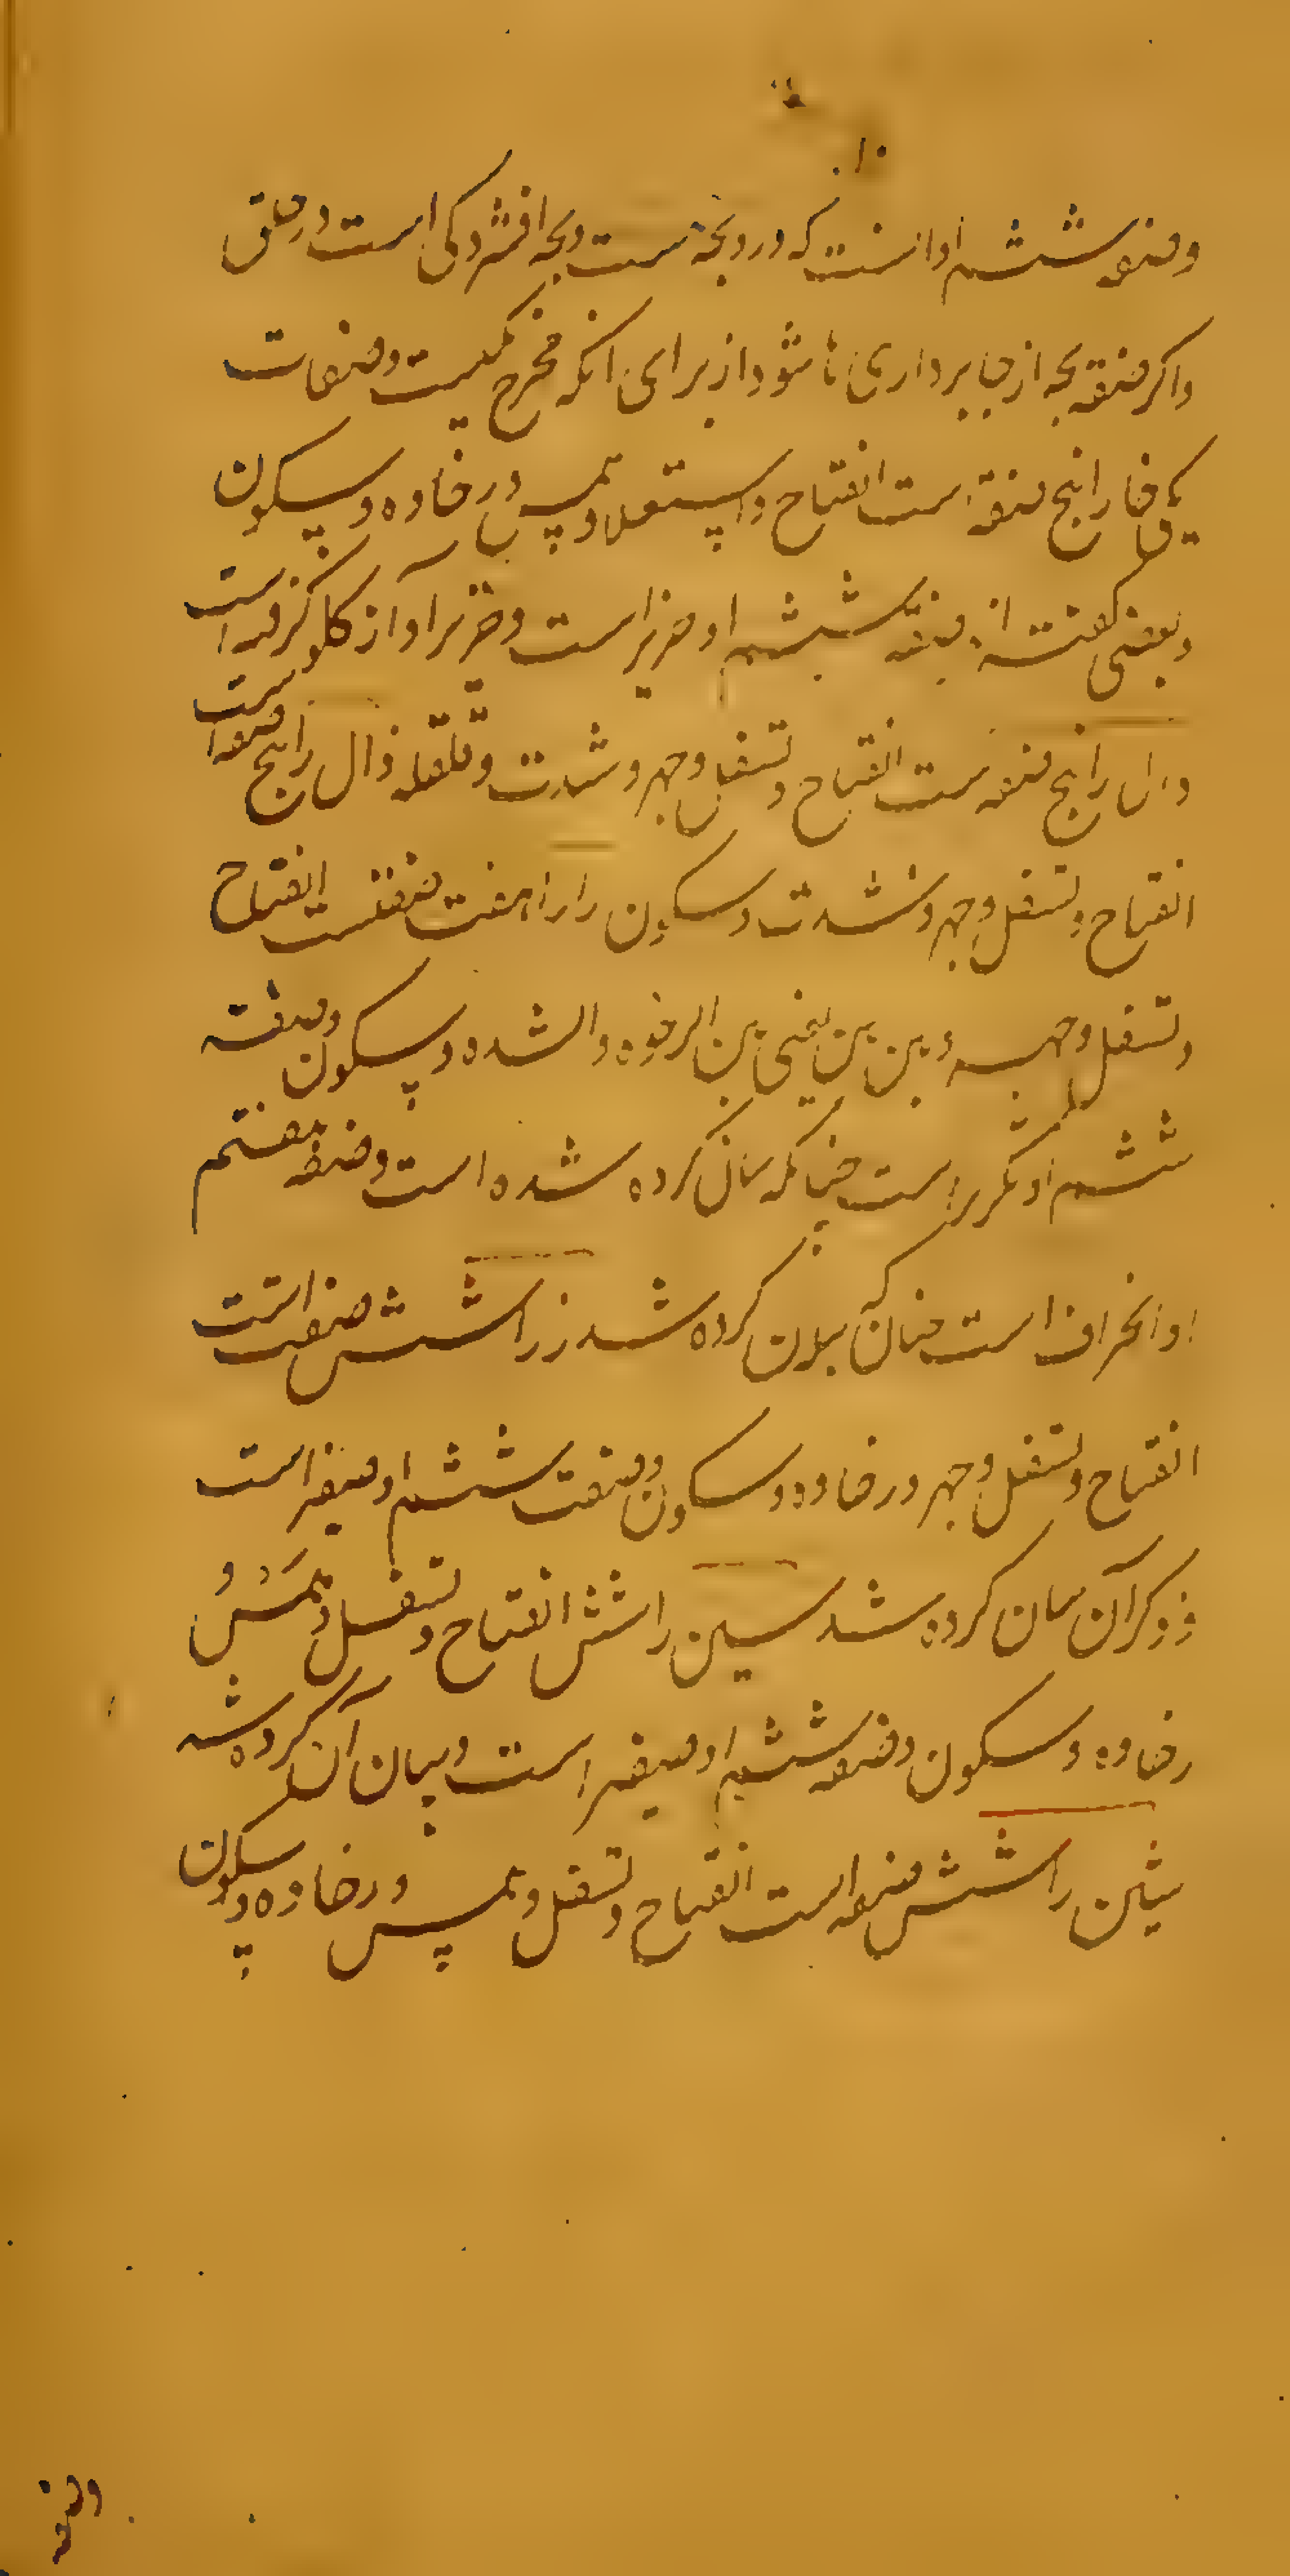 وصفة ششم او انست که درو بحه است و بحه افشردکی است در حلق
واکر صفة بحه از حا برداری ها شود از برای انکه مخرج یکیست وصفات
یکی خا را پنج صفة است انفتاح و استعلا و همس و رخاوه و سکون
و بعضی کفته اند صفة ششم او خریر است و خریر آواز کلو کرفته است
دال را پنج صفة است انفتاح و تسفل و جهر و شدت و قلقله ذال را پنج صفة است
انفتاح و تسفل و جهر و شدت و سکون را را هفت صفتست انفتاح
و تسفل و جهر و بین بین یعنی بین الرخوه و الشده و سکون و صفة
ششم او تکریر است چنانکه بیان کرده شده است و صفة هفتم
او انحراف است چنان که بیان کرده شد زرا شش صفت است
انفتاح و تسفل و جهر و رخاوه و سکون و صفت ششم او صفیر است
و ذکر آن بیان کرده شد سین را شش انفتاح و تسفل و همس و
رخاوه و سکون و صفة ششم او صفیر است و بیان آن کرده شد
شین را شش صفة است انفتاح و تسفل و همس و رخاوه و سکون